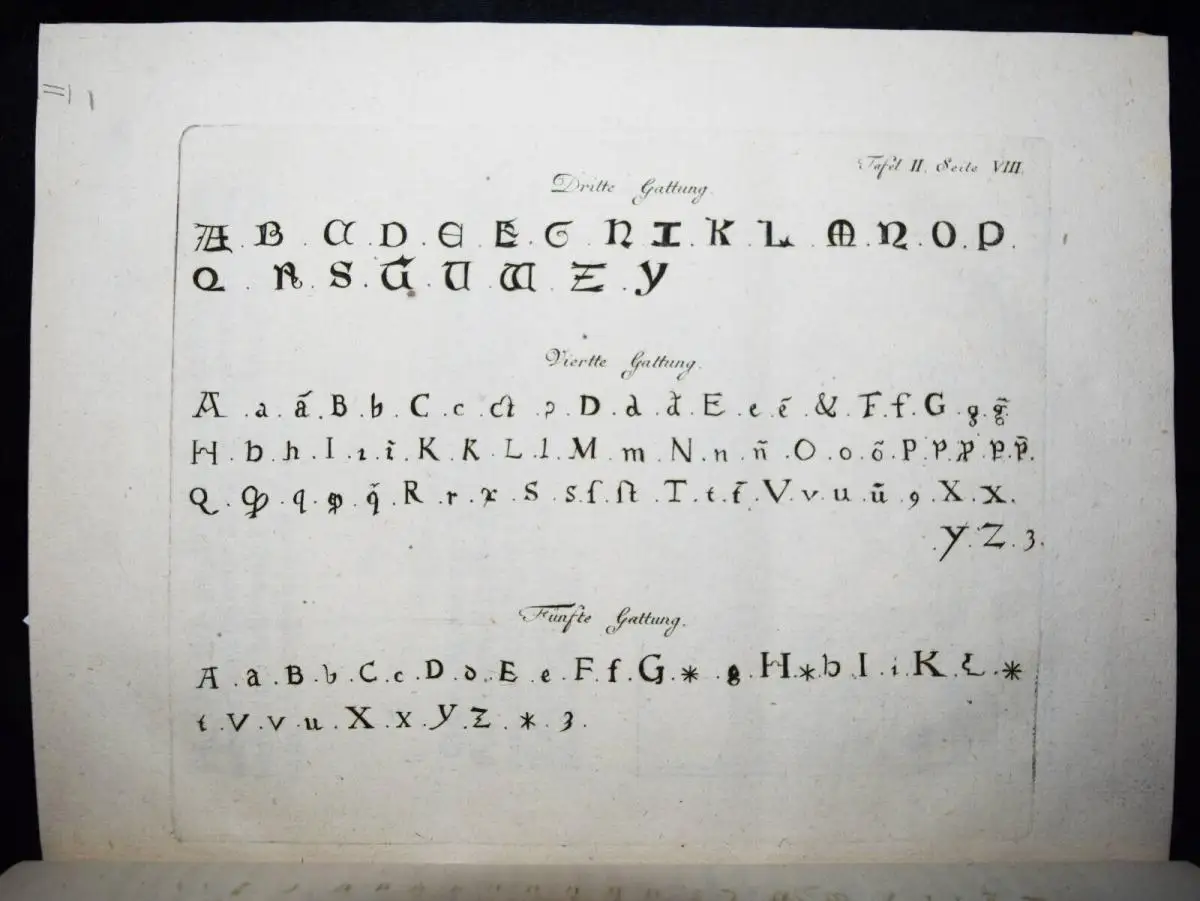 Tafel II. Seite VIII.
Dritte Gattung.
A . B . C . D . E . E . G . N I . K . L . M . N . O . P .
Q . R . S . G . U . W . Z . Y
Viertte Gattung.
A . a . ã . B . b . C . c . ct . ꝛ . D . d . đ . E . e . ẽ . & . F . f . G . g . g̃
H . b . h . I . ı . ĩ . K . K . L . l . M . m . N . n . ñ . O . o . õ . P . p . p . p . p̃ .
Q . Qp . q . qp . q̃ . R . r . r . S . s . ſ . ſt . T . t . t̃ . V . v . u . ũ . 9 . X . x .
. Y . Z . 3 .
Fünfte Gattung.
A . a . B . b . C . c . D . d . E . e . F . f . G . * . g . H . * . b . I . i . K . L . *
t . V . v . u . X . x . Y . Z . * . 3 .